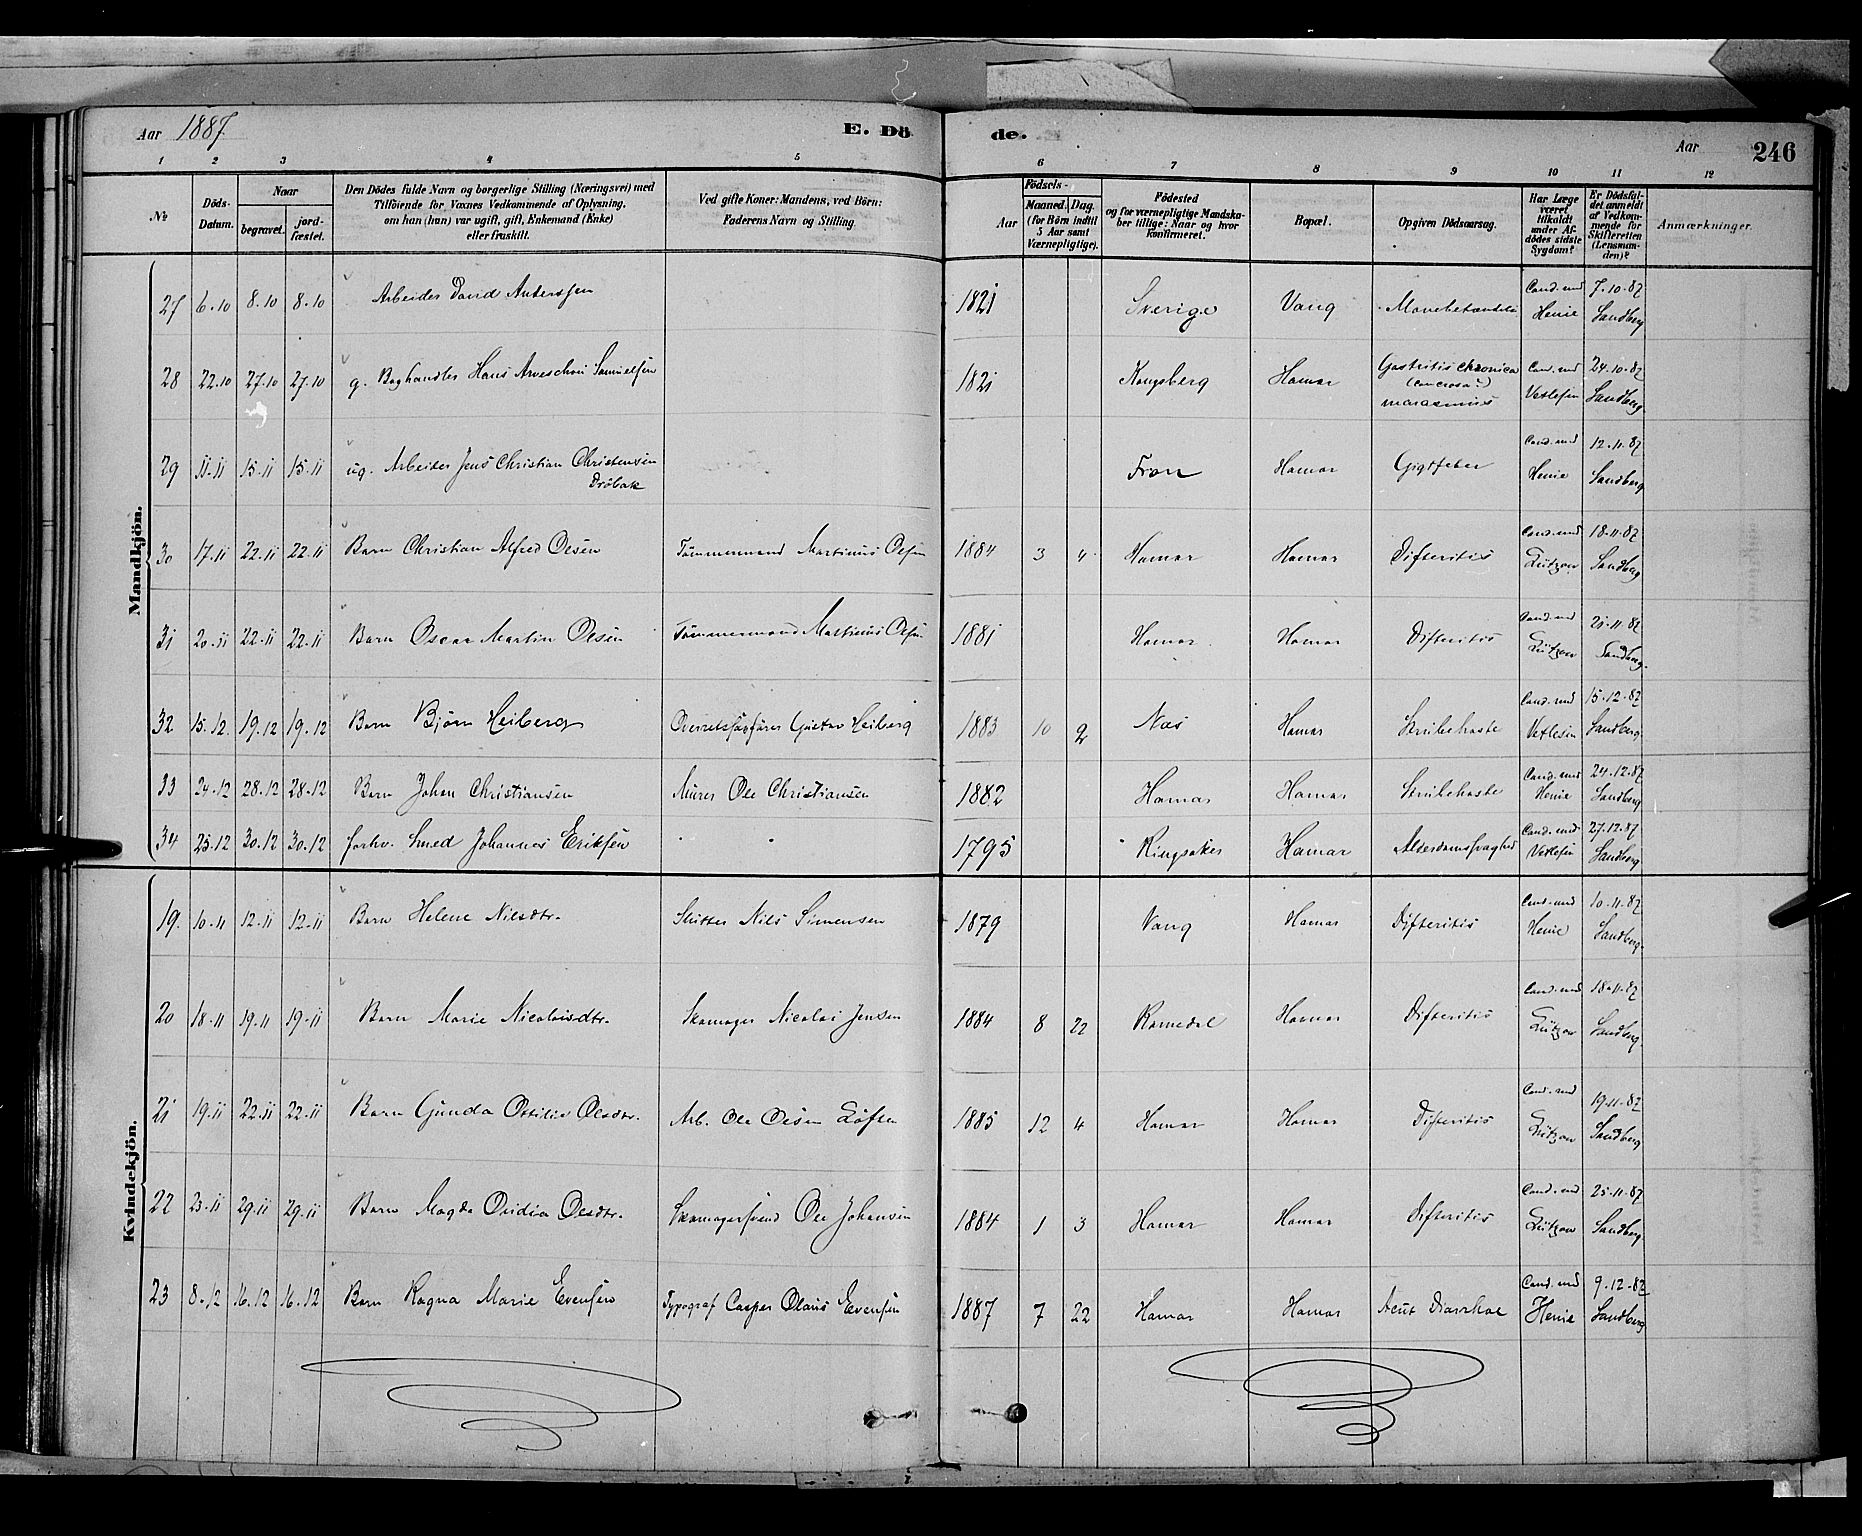 Aar 1887. E. Dö de. Aar 246
1 2 3 4 5 6 7 8 9 10 11 12
№
Döds-Datum.
Naar
begravet. jord-fæstet.
Den Dödes fulde Navn og borgerlige Stilling (Næringsvei) med
Tilföiende for Voxnes Vedkommende af Oplysning,
om han (hun) var ugift, gift, Enkemand (Enke)
eller fraskilt.
Ved gifte Koner: Mandens, ved Börn:
Faderens Navn og Stilling.
Födsels-
Aar Maaned. Dag.
(for Börn indtil
5 Aar samt
Værnepligtige).
Födested
og for værnepligtige Mandska-
ber tillige: Naar og hvor
konfirmeret.
Bopæl.
Opgiven Dödsaarsag.
Har Læge
været
tilkaldt
under Af-
dödes sidste
Sygdom?
Er Dödsfal-
det anmeldt
af Vedkom-
mende for
Skifteretten
(Lensman-
den)?
Anmærkninger.
Mandkjön.
27 6.10 8.10 8.10 Arbeider David Anderssen 1821 Sverige Vang Cand. med Henie 7.10.87 Sandberg
28 22.10 27.10 27.10 g. Hans Samuelsen 1821 Kongsberg Hamar Gastritis chronica (cancrosa?) marasmus Cand. med Vetlesen 24.10.87 Sandberg
29 11.11 15.11 15.11 ug. Arbeider Jens Christian Christensen Dröbak Fron Hamar Gigtfeber Cand. med Henie 12.11.87 Sandberg
30 17.11 22.11 22.11 Barn Christian Alfred Olsen Tømmermand Martinus Olsen 1884 3 4 Hamar Hamar Difteritis Cand. med Lützow 18.11.87 Sandberg
31 20.11 22.11 22.11 Barn Oscar Martin Olsen Tømmermand Martinus Olsen 1881 Hamar Hamar Difteritis Cand. med Lützow 21.11.87 Sandberg
32 15.12. 19.12 19.12 Barn Bjørn Heiberg Overretssagfører Gustav Heiberg 1883 10 2 Næs Hamar Strubehoste Cand. med Vetlesen 15.12.87 Sandberg
33 24.12 28.12 28.12 Barn Johan Christiansen Murer Ole Christiansen 1882 Hamar Hamar Strubehoste Cand. med Henie 24.12.87 Sandberg
34 25.12 30.12 30.12 forhv. Smed Johannes Eriksen 1795 Ringsaker Hamar Alderdomssvaghed Cand. med Vetlesen 27.12.87 Sandberg
Kvindekjön.
19. 10.11 12.11 12.11 Barn Helene Nilsdtr. Nils Simensen 1879 Vang Hamar Difteritis Cand. med Henie 10.11.87 Sandberg
20 18.11 19.11 19.11 Barn Marie Nicolaisdtr. Skomager Nicolai Jensen 1884 8 22 Romedal Hamar Difteritis Cand. med Lützow 18.11.87 Sandberg
21 19.11 22.11 22.11 Barn Gunda Ottilie Olsdtr. Arb. Ole Olsen Løften 1885 12 4 Hamar Hamar Difteritis Cand. med Lützow 19.11.87 Sandberg
22 23.11 29.11 29.11 Barn Magda Ovidia Olsdtr. Skomagersvend Ole Johansen 1884 1 3 Hamar Hamar Difteritis Cand. med Lützow 25.11.87 Sandberg
23 8.12 16.12 16.12 Barn Ragna Marie Evensen Typograf Casper Olaus Evensen 1887 7 22 Hamar Hamar Acut Diarrhoe Cand. med Henie 9.12.87 Sandberg